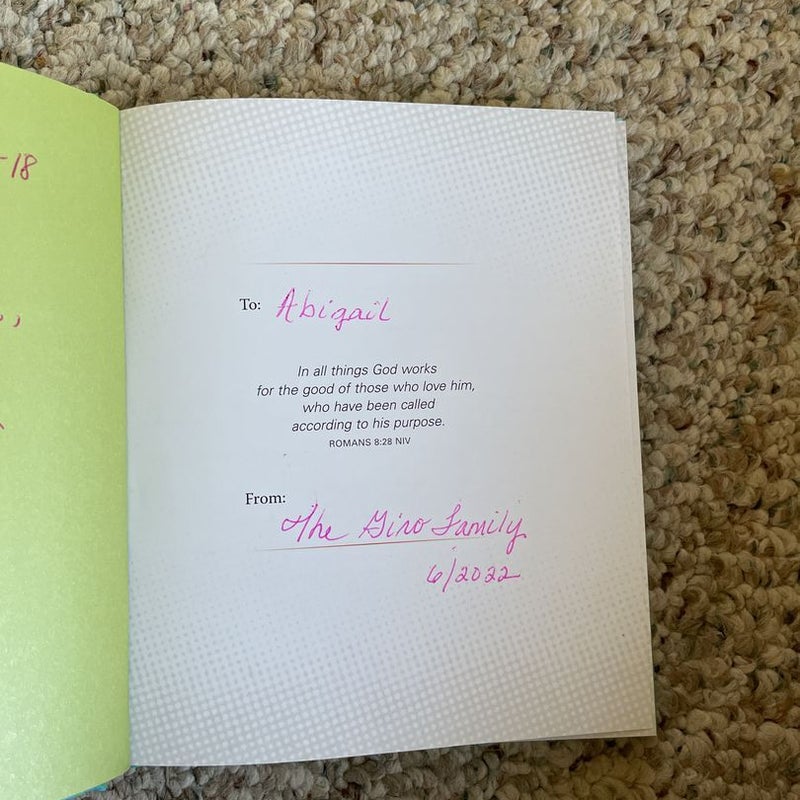 -18
To: Abigail
In all things God works
for the good of those who love him,
who have been called
according to his purpose.
ROMANS 8:28 NIV
From:
The Giro Family
6/2022